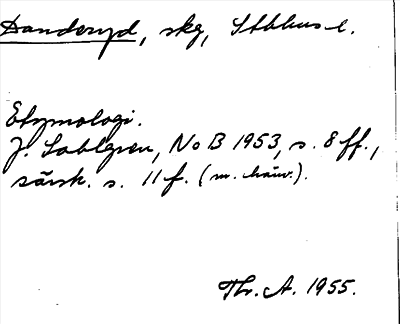 Danderyd, skg, Sthlms l.
Etymologi.
J. Sahlgren, NoB 1953, s. 8 ff.,
särsk. s. 11 f. (m. hänv.).
Thr. A. 1955.